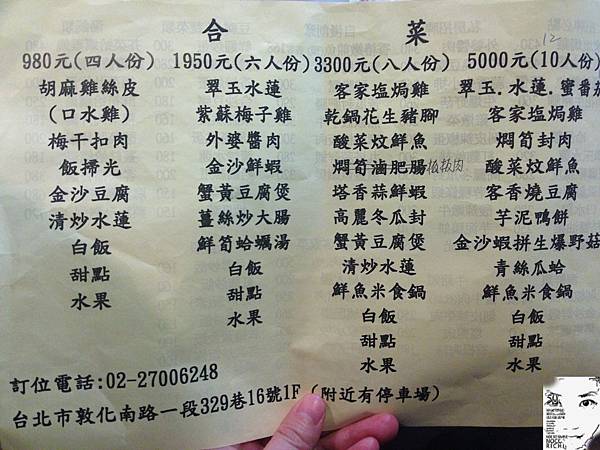 合 菜
980元(四人份)
胡麻雞絲皮
(口水雞)
梅干扣肉
飯掃光
金沙豆腐
清炒水蓮
白飯
甜點
水果
1950元(六人份)
翠玉水蓮
紫蘇梅子雞
外婆醬肉
金沙鮮蝦
蟹黃豆腐煲
薑絲炒大腸
鮮筍蛤蠣湯
白飯
甜點
水果
3300元(八人份)
客家塩焗雞
乾鍋花生豬腳
酸菜炆鮮魚
燜筍滷肥腸
塔香蒜鮮蝦
高麗冬瓜封
蟹黃豆腐煲
清炒水蓮
鮮魚米食鍋
白飯
甜點
水果
12
5000元(10人份)
翠玉.水蓮.蜜番茄
客家塩焗雞
燜筍封肉
酸菜炆鮮魚
客香燒豆腐
芋泥鴨餅
金沙蝦拼生爆野菇
青絲瓜蛤
鮮魚米食鍋
白飯
甜點
水果
訂位電話:02-27006248
台北市敦化南路一段329巷16號1F (附近有停車場)